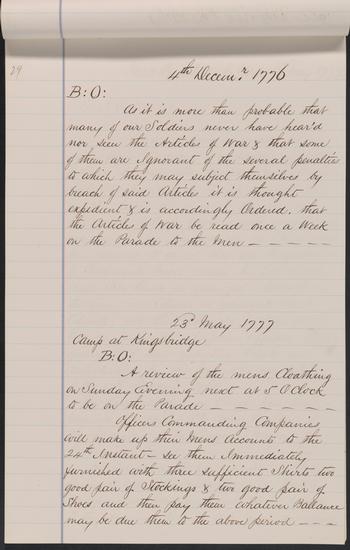 29
4th Decemr 1776
B: O:
As it is more than probable that
many of our Soldiers never have hear'd
nor seen the Articles of War & that some
of them are Ignorant of the several penalties
to which they may subject themselves by
breach of said Articles it is thought
expedient & is accordingly Ordered. that
the Articles of War be read once a Week
on the Parade to the Men – – – – –
23d May 1777
Camp at Kingsbridge
B: O:
A review of the mens Cloathing
on Sunday Evening next at 5 O'Clock
to be on the Parade – – – – – –
Officers Commanding Companies
will make up their Mens Accounts to the
24th Instant – see them Immediately
furnished with three sufficient Shirts two
good pair of Stockings & two good pair of
Shoes and then pay them whatever Ballance
may be due them to the above period – – –